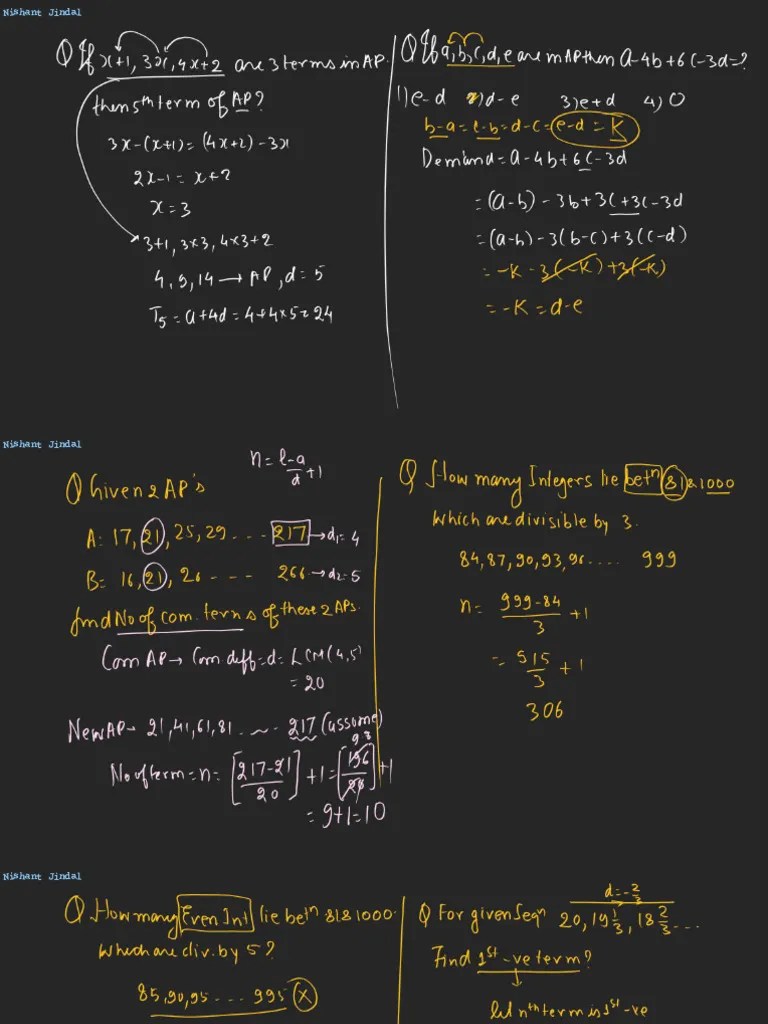 Nishant Jindal
Q If x+1, 3x, 4x+2 are 3 terms in AP.
then 5th term of AP?
3x-(x+1) = (4x+2)-3x
2x-1 = x+2
x = 3
3+1, 3×3, 4×3+2
4, 9, 14 → AP, d = 5
T5 = a+4d = 4+4×5 = 24
Q If a,b,c,d,e are in AP then a-4b+6c-3d=?
1) e-d 2) d-e 3) e+d 4) 0
b-a = c-b = d-c = e-d = K
Demand = a-4b+6c-3d
= (a-b) - 3b+3c+3c-3d
= (a-b)-3(b-c)+3(c-d)
= -K - 3(-K) + 3(-K)
= -K = d-e
Nishant Jindal
n = l-a/d +1
Q Given 2 AP's
A: 17, 21, 25, 29 ... 217 → d1 = 4
B = 16, 21, 26 .... 266 → d2 = 5
find No of com. terms of these 2 APs.
Com AP → Com diff = d = LCM(4,5)
= 20
New AP → 21, 41, 61, 81 ... 217 (assume)
9.8
No of term = n = [217-21/20] +1 = [196/20] +1
= 9+1 = 10
Q How many Integers lie betn 81 & 1000
which are divisible by 3.
84, 87, 90, 93, 96 .... 999
n = 999-84/3 +1
= 915/3 +1
306
Nishant Jindal
Q How many Even Int lie betn 81 & 1000.
which are div. by 5?
85, 90, 95 ... 995 (X)
d = -2/3
Q For given Seqn 20, 19 1/3, 18 2/3 ...
Find 1st -ve term?
let nth term is 1st -ve